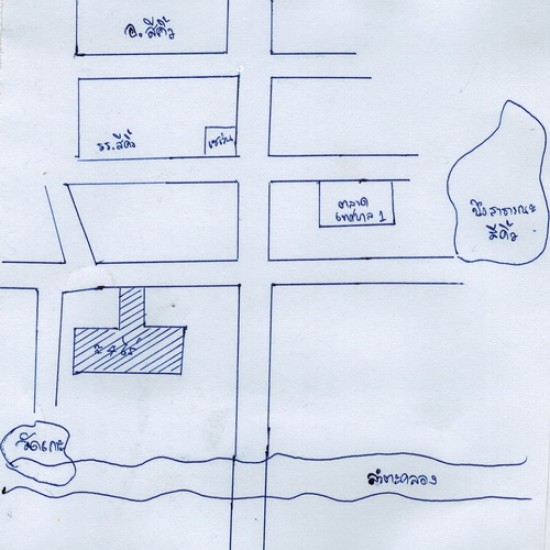 อ. สีคิ้ว
รร. สีคิ้ว
เซเว่น
ตลาด
เทศบาล 1
บึงสาธารณะ
สีคิ้ว
2-4 ไร่
วัดเกาะ
ลำตะคลอง